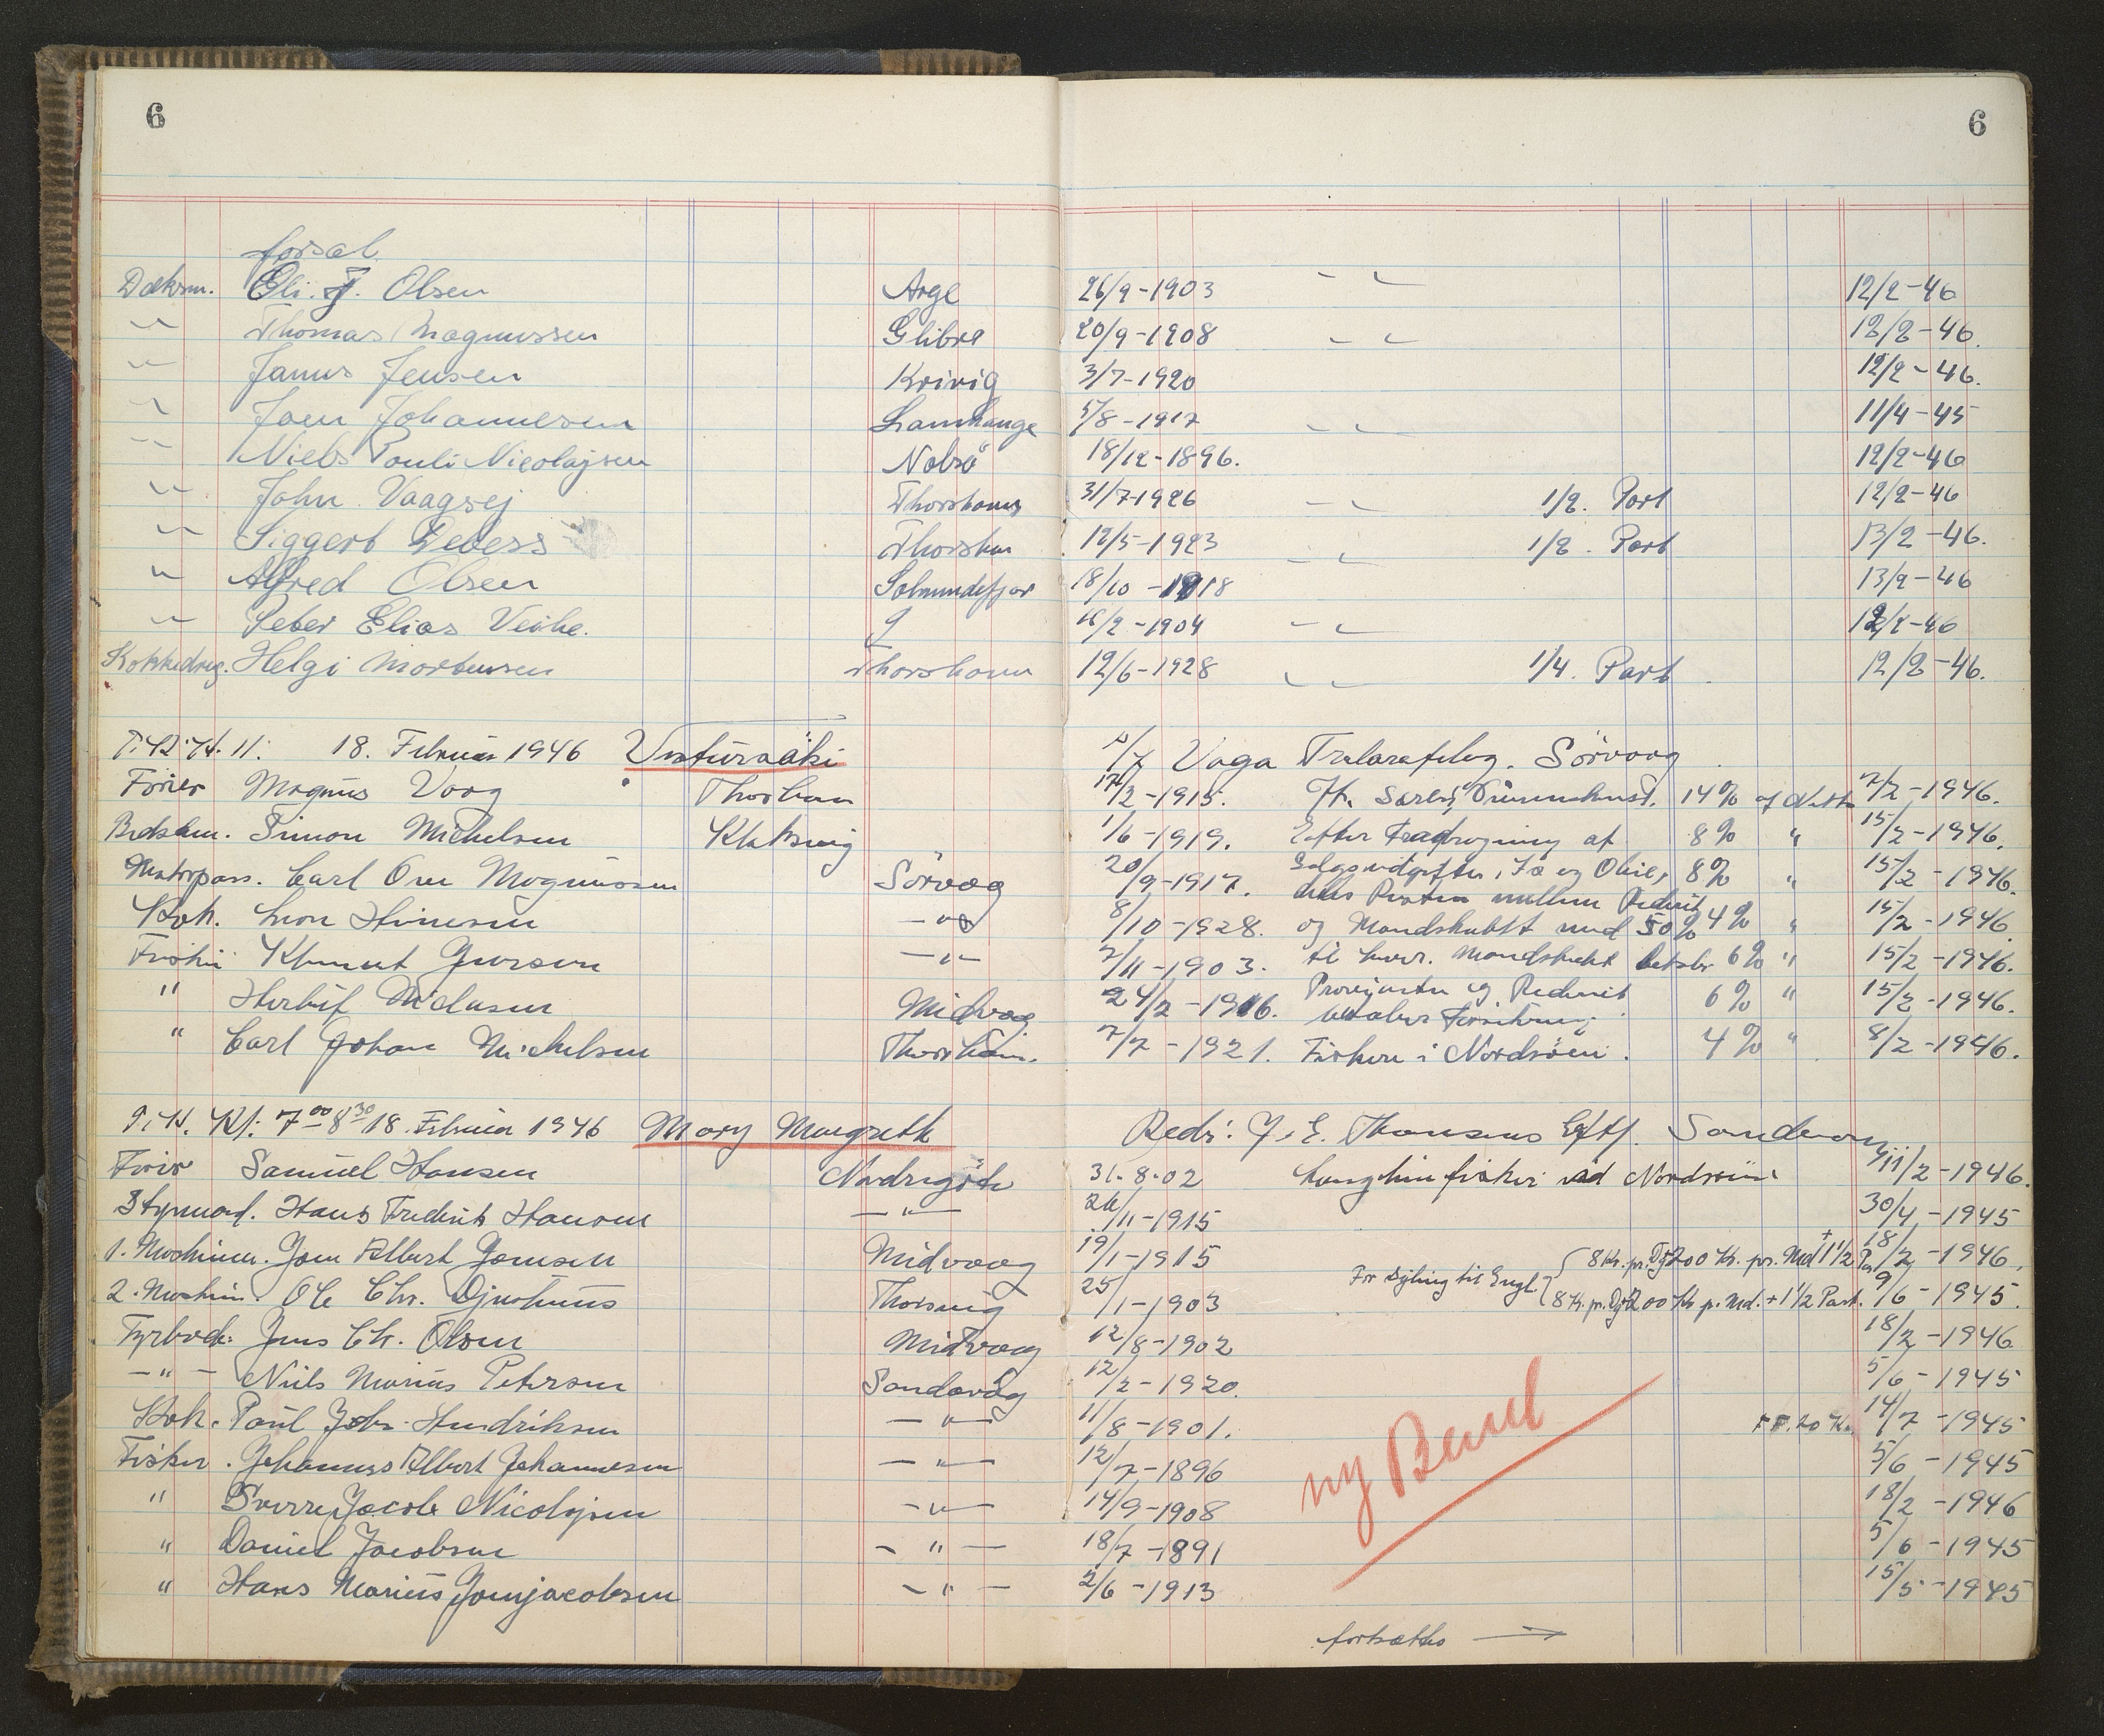 6 6
forsat.
Dæksm. Eli. J. Olsen Arge 26/9-1903 12/2-46
Thomas Magnussen Glibre 20/9-1908 12/2-46.
Janus Jensen Krivig 3/7-1920 12/2-46.
Joen Johannesen Lamhauge 5/8-1917 11/4-45
Niels Pouli Nicolajsen Nolsö 18/12-1896. 12/2-46
John Vaagsej Thorshavn 31/7-1926 1/2. Part 12/2-46
Siggert Debess Thorshvn 12/5-1923 1/2. Part 13/2-46.
Alfred Olsen Solmundefjor 18/10-1918 13/2-46
Peter Elias Veihe. 16/2-1904 12/2-46
Kokkedreg. Helgi Mortensen Thorshavn 12/6-1928 1/4. Part 12/2-46.
18. Februar 1946 Vesturvaki Vaga Tralarafelag. Sörvaag
Förer Magnus Vaag Thorshavn 17/2-1915. 14% af Netto 7/2-1946.
Bedstem. Simon Michelsen Klaksvig 1/6-1919. Efter Fradragning af 8% " 15/2-1946.
Motorpass. Carl Ove Magnussen Sörvag 20/9-1917. Salgsudgifter, Is og Olie, 8% " 15/2-1946.
deles Resten mellem Rederit
Kok. 8/10-1928. og Mandskabet med 50% 4% " 15/2-1946
Fisker Klemet Joensen -"- 2/11-1903. til hver. Mandskabet betaler 6% " 15/2-1946.
" Herluf Nielasen Midvaag 24/2-1916. Provianten og Rederiet 6% " 15/2-1946.
betaler Forsikring
" Carl Johan Michelsen Thorshavn. 7/7-1921. Fiskeri i Nordsöen. 4% " 8/2-1946.
Kl: 7 00 - 8 30 18. Februar 1946 Mary Margreth Redr: J. E. Thomsens Eftf. Sandevaag
Förer Samuel Hansen Nordregöte 31.8.02 Langlinefiskeri ved Nordsöen 11/2-1946.
Styrmand. Hans Frederik Hansen -"- 26/11-1915 30/4-1945
1. Maskinm. Joen Albert Joensen Midvaag 19/1-1915 8 Kr. pr. Dg+200 Kr. pr. Md +1 1/2 Pa. 18/2-1946.
For Sejling til Engl.
2. Maskin. Ole Chr. Djurhuus Thorsvig 25/1-1903 8 Kr. pr. Dg+200 Kr p. Md. +1 1/2 Part. 9/6-1945.
Fyrbød. Jens Chr. Olsen Midvaag 12/8-1902 18/2-1946
-"- Niels Marius Petersen Sandavág 12/2-1920. 5/6-1945
Kok. Paul Johs. Hendriksen -"- 11/8-1901. 20 Kr. 14/7-1945
Fisker. Johannes Albert Johannesen -"- 12/7-1896 5/6-1945
" Sverre Jacob Nicolajsen -"- 14/9-1908 18/2-1946
ny Besæt
" Daniel Jacobsen -"- 18/7-1891 5/6-1945
" Hans Marius Joenjacobsen -"- 2/6-1913 15/5-1945
fortsættes →